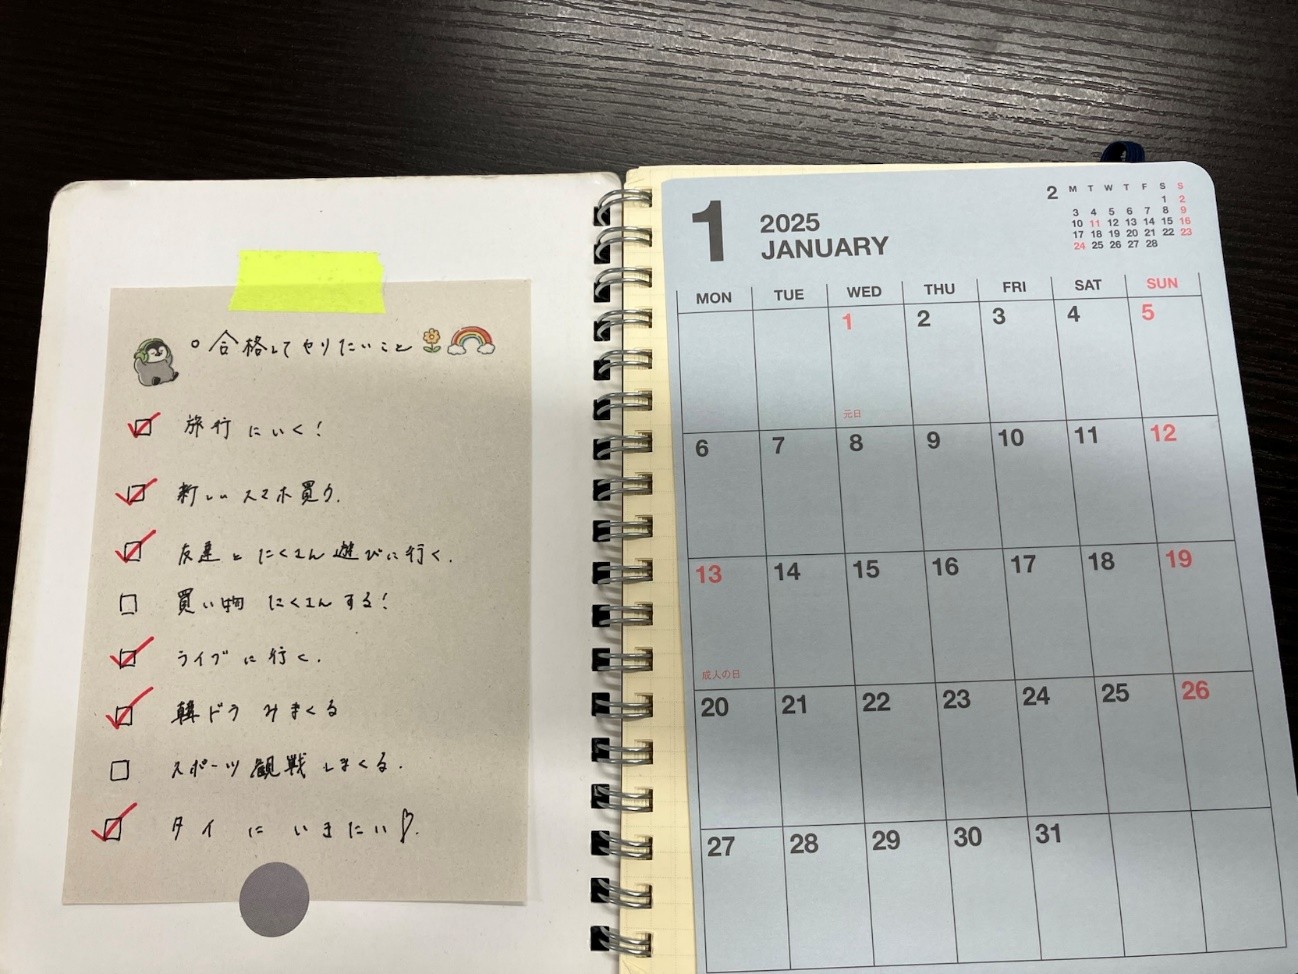 。合格してやりたいこと
旅行にいく！
新しいスマホ買う.
友達とたくさん遊びに行く.
買い物たくさんする！
ライブに行く.
韓ドラみまくる
スポーツ観戦しまくる.
タイにいきたい♡.
1
2025
JANUARY
2
M T W T F S S
1 2
3 4 5 6 7 8 9
10 11 12 13 14 15 16
17 18 19 20 21 22 23
24 25 26 27 28
MON TUE WED THU FRI SAT SUN
1 2 3 4 5
元日
6 7 8 9 10 11 12
13 14 15 16 17 18 19
成人の日
20 21 22 23 24 25 26
27 28 29 30 31